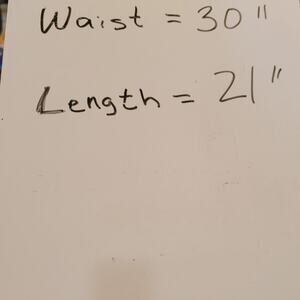 Waist = 30"
Length = 21"